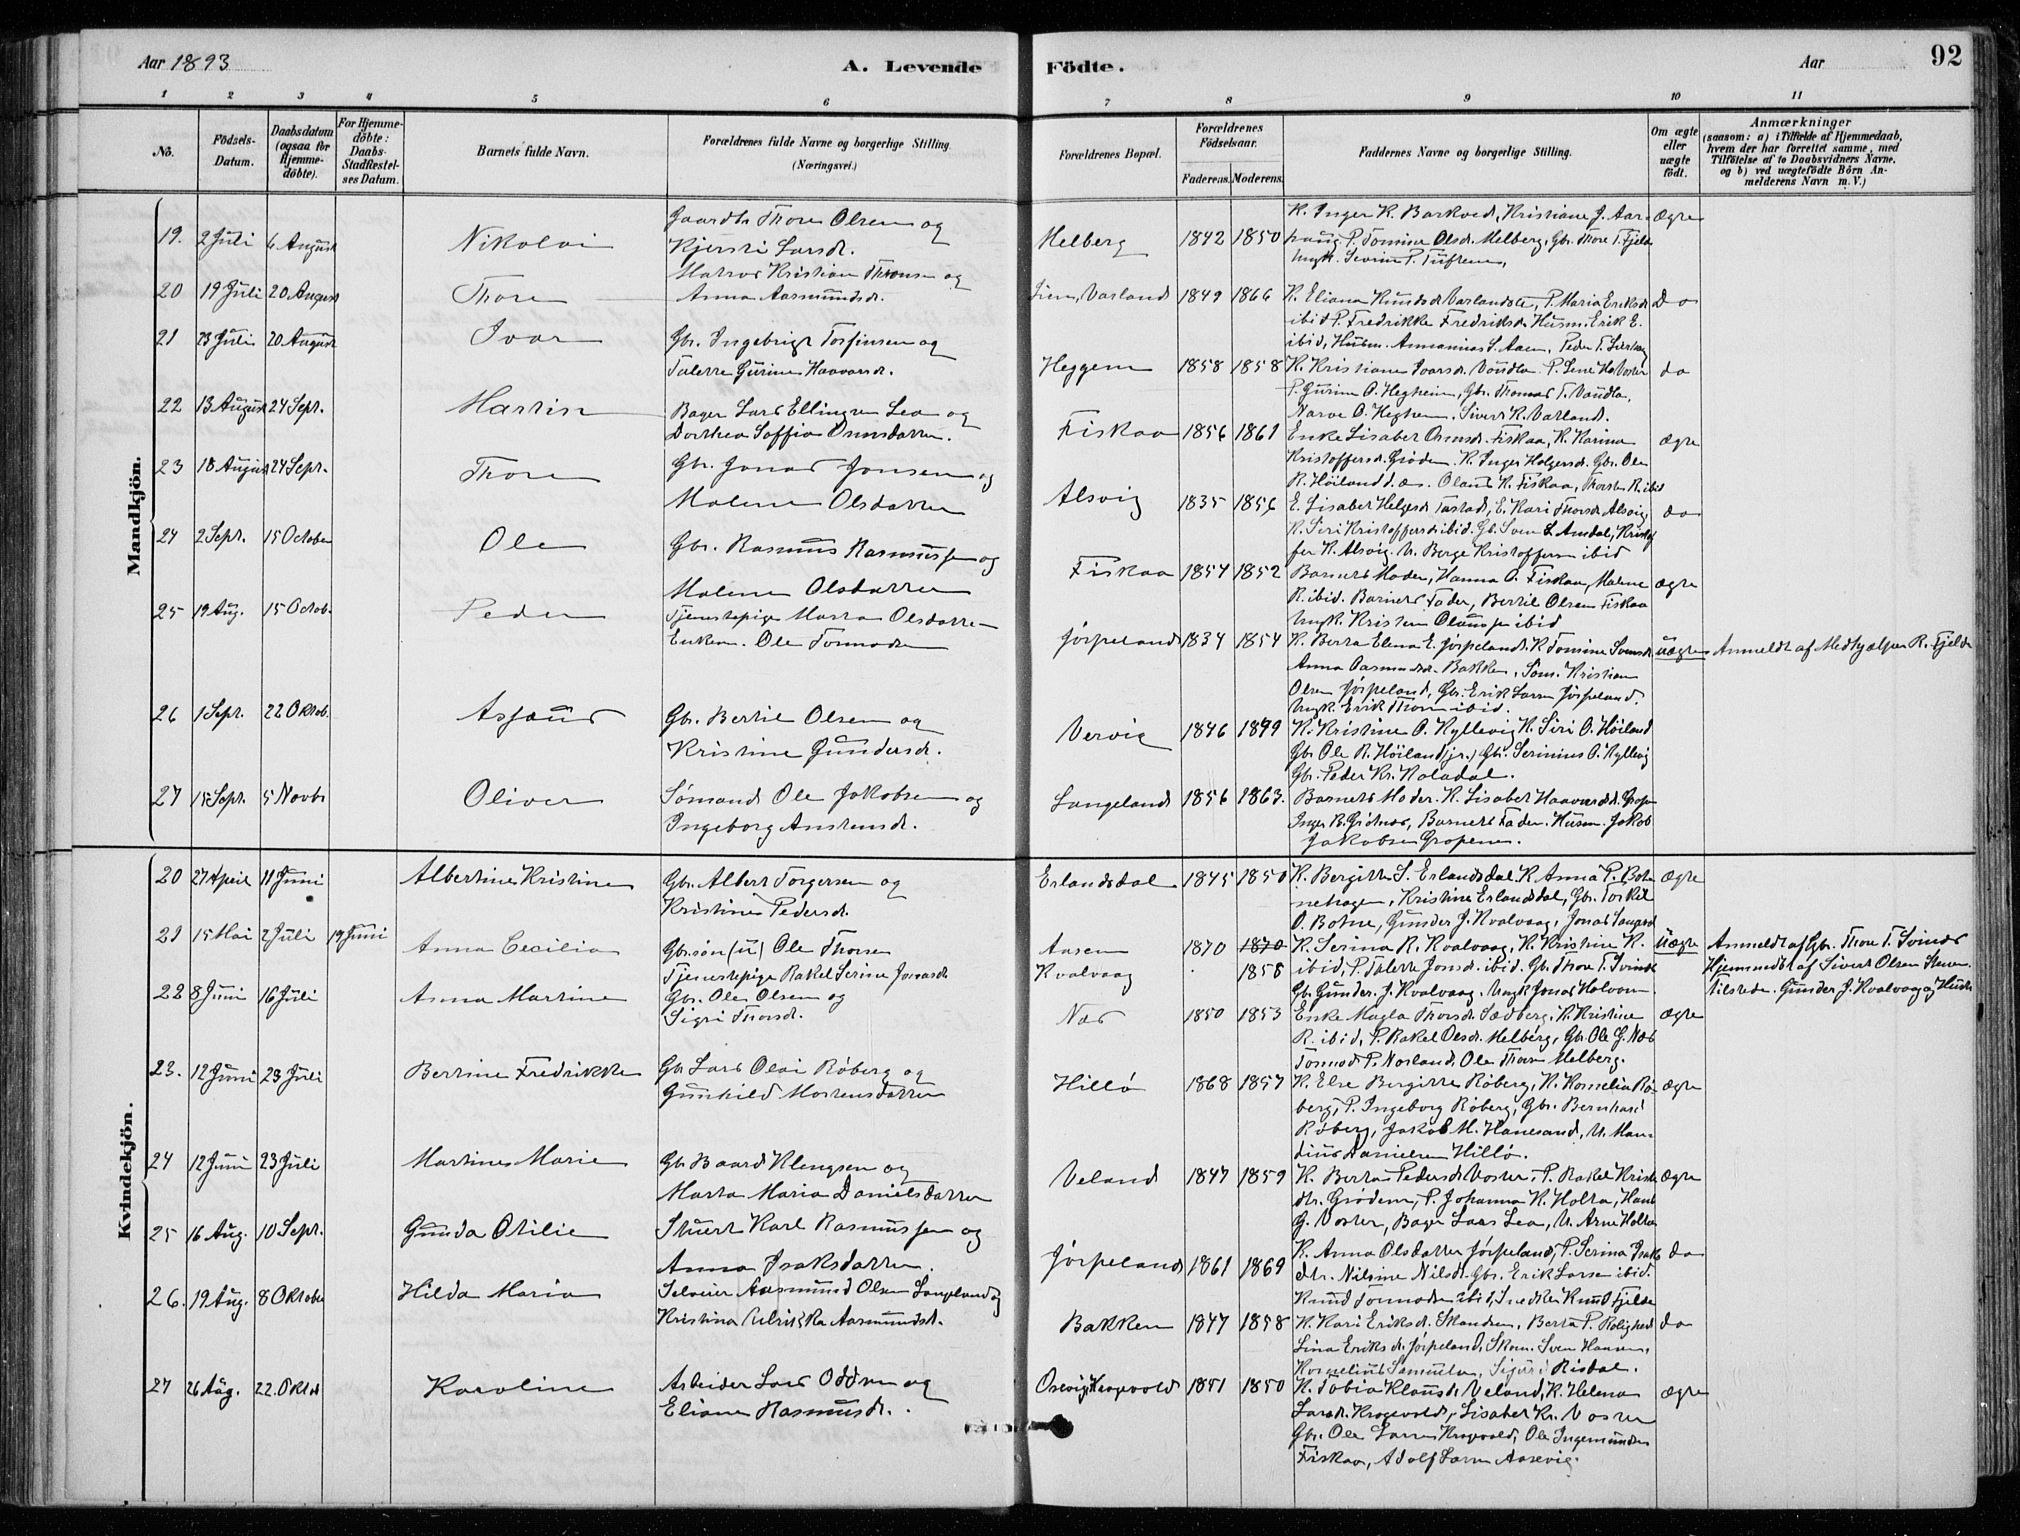 Aar 1893
A. Levende
Födte.
Aar
92
1 2 3 4 5 6 7 8 9 10 11
No.
Födsels-Datum.
Daabsdatum (ogsaa for Hjemme-döbte).
For Hjemme-döbte: Daabs-Stadfæstel-ses Datum.
Barnets fulde Navn.
Forældrenes fulde Navne og borgerlige Stilling. (Næringsvei.)
Forældrenes Bopæl.
Forældrenes Födselsaar.
Faderens. Moderens.
Faddernes Navne og borgerlige Stilling.
Om ægte eller uægte födt.
Anmærkninger
(saasom: a) i Tilfælde af Hjemmedaab, hvem der har forrettet samme, med Tilföielse af to Daabsvidners Navne, og b) ved uægtefödte Börn Anmelderens Navn m. V.)
Mandkjön.
19. 2 Juli 6 August Nikolai Gaardb. Thore Olsen og
Kjersti Larsd. Melberg 1842 1850 K. Inger K. Barkved, Kristiane J. Aar- ægte
haug P. Tomine Olsd. Melberg, Gbr. Thore T. Fjelde
Ungk. Severin P. Tuftene,
20 19 Juli 20 August Thore Matros Kristian Thorsen og
Anna Aasmundsd. Varland 1849 1866 K. Eliana Knudsd. Varlandste, P. Maria Eriksd. Do
ibid P. Fredrikke Fredriksd. Husm. Erik E.
ibid, Husm. Annanias S. Aasen, Peder T.
21 23 Juli 20 August Ivar Gbr. Ingebrigt Torfinsen og
Talette Gurine Haavarsd. Heggem 1858 1858 K. Kristiane Ivarsd. Voudla P. Lene H. Voster do
P. Gurine O. Heghem, Gbr. Thomas T. Voudla,
Narve O. Heghem, Sivert K. Varland.
22 13 August 24 Sept. Martin Bager Lars Ellingsen Lea og
Dorthea Soffia Osmsdatter. Fiskaa 1856 1861 Enke Lisabet Osmsd. Fiskaa, K. Karina ægte
Kristoffersd. Grøden K. Inger Holgersd. Gbr. Ole
R. Høiland d. æ. Olaus K. Fiskaa, Thorsten R. ibid
23 18 August 24 Sept. Thore Gbr. Jonas Jonsen og
Malene Olsdatter Alsvig 1835 1856 E. Lisabet Helgesd. Tastad, E. Kari Thorsd. Alsvig, do
K. Siri Kristoffersd. ibid. Gb. Sven L. Amdal, Kristof
fer K. Alsvig. U. Berge Kristoffersen ibid
24 2 Sept. 15 October Ole Gbr. Rasmus Rasmussen og
Malene Olsdatter Fiskaa 1854 1852 Barnets Moder, Hanna O. Fiskaa, Malene ægte
R. ibid. Barnets Fader, Bertil Olsen Fiskaa
Ungk. Kristen Olaussen ibid
25 19 Aug. 15 Octob. Peder Tjenestepige Marta Olsdatter
Enkem. Ole Tormodsen Jørpeland 1834 1854 K. Berta Elena E. Jørpeland. K. Tomine Svensd. Uægte Anmeldt af Medhjælper R. Fjelde
Anna Aasmundsd. Bakken, Søm. Kristian
Olsen Jørpeland, Gbr. Erik Larsen Jørpeland.
Ungk. Erik Thorsen ibid.
26 1 Sept. 22 Oktob. Asgaut Gbr. Bertil Olsen og
Kristine Gundersd. Vervig 1846 1849 K. Kristine O. Kyllevig K. Siri O. Høiland
Gbr. Ole R. Høiland (jr.) Gbr. Serinius O. Kyllevig
Gbr. Peder Kr. Koladal.
27 15 Sept. 5 Novbr Oliver Sømand Ole Jakobsen og
Ingeborg Anstensd. Langeland 1856 1863. Barnets Moder. K. Lisabet Haavardsd. Gropen
Inger B. Barnets Fader. Husm. Jakob
Jakobsen Gropene.
Kvindekjön.
20 27 April 11 Juni Albertine Kristine Gbr. Albert Torgersen og
Kristine Pedersd. Erlandsdal 1845 1850 K. Bergitte S. Erlandsdal K. Anna P. Bot-
nehagen, Kristine Erlandsdal, Gbr. Torkil ægte
O. Botne, Gunder J. Kvalvaag, Jonas
21 15 Mai 2 Juli 19 Juni Anna Cecilia Gbr.søn (u) Ole Thorsen
Tjenestepige Rakel Serine Jonasd. Aasen
Kvalvaag 1870 1870
1858 K. Serina R. Kvalvaag, K. Kristine K. Uægte Anmeldt af Gbr. Thore T. Svines
ibid, P. Talette Jonsd. ibid. Gb. Thore T. Svines Hjemmedøbt af Sivert Olsen
Gb. Gunder J. Kvalvaag. Ungk Jonas Halvorsen tilstede. Gunder J. Kvalvaag og Hustru
22 8 Juni 16 Juli Anna Martine Gbr. Ole Olsen og
Sigri Thorsd. Næs 1850 1853 Enke Magla Thorsd. Sedberg, K. Kristine ægte
R. ibid, P. Rakel Olsd. Melberg, Gbr. Ole G. Næs
Tormod P. Norland, Ole Thorsen Melberg.
23. 12 Juni 23 Juli Bertine Fredrikke Gbr Lars Olai Røberg og
Gunhild Mortensdatter Hillø 1868 1857 K. Else Bergitte Røberg, K. Kornelia Rø- ægte
berg, P. Ingeborg Røberg, Gbr. Bernhard
Røberg, Jakob M. Hanesand, U. Man-
dius Danielsen Hillø.
24 12 Juni 23 Juli Martine Marie Gbr Baard Klengsen og
Marta Maria Danielsdatter Veland 1847 1859 K. Berta Pedersd. Voster, P. Rakel Krist- ægte
dtr. Grødem, P. Johanna K. Holta, Hans
G. Voster, Bager Lars Lea, U. Arne Holta
25 16 Aug. 10 Sept. Gunda Otilie Stuert Karl Rasmussen og
Anna Isaksdatter. Jørpeland 1861 1869 K. Anna Olsdatter Jørpeland, P. Serina Isaks- do
dtr. Nilsine Nilsd. Gbr. Erik Larsen ibid.
Knud Tormodsen ibid, Snedker Knud Fjelde
26. 19 Aug. 8 Oktober Hilda Maria Selveier Aasmund Olsen Langeland og
Kristina Ulrikka Aasmundsd. Bakken 1847 1858 K. Kari Eriksd. Skanden, Berta P. Rolighed do
Lina Eriksd. Jørpeland, Skom. Sven Hansen,
Kornelius Samuelsen, Sigurd Risdal.
27 26 Aug. 22. Oktob Karoline Arbeider Lars Oddsen og
Eliane Rasmusd. Osevig Krogevold 1851 1850 K. Tobia Klausd. Veland, K. Helena ægte
Larsd. Krogevold, Lisabet Kr. Voster
Gbr. Ole Larsen Krogevold, Ole Ingemundsen
Fiskaa, Adolf Larsen Aasevig.